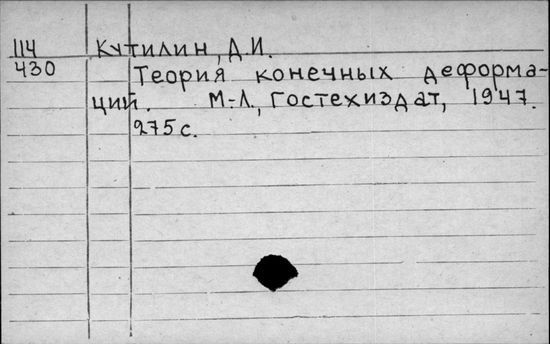 114 Кутилин, Д.И.
430 Теория конечных деформа-
ций. М-Л., Гостехиздат, 1947.
275 с.